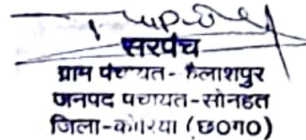 सरपंच
ग्राम पंचायत-कैलाशपुर
जनपद पंचायत-सोनहत
जिला-कोरिया (छ०ग०)